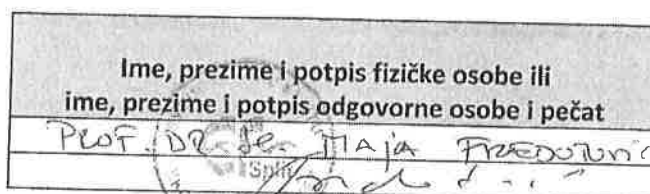 Ime, prezime i potpis fizičke osobe ili
ime, prezime i potpis odgovorne osobe i pečat
PROF. DR. sc. MAJA FREDOTOVIĆ
Split